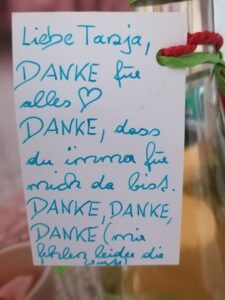 Liebe Tanja,
DANKE für
alles ♡
DANKE, dass
du immer für
mich da bist.
DANKE, DANKE,
DANKE (mir
fehlen leider die
Worte)